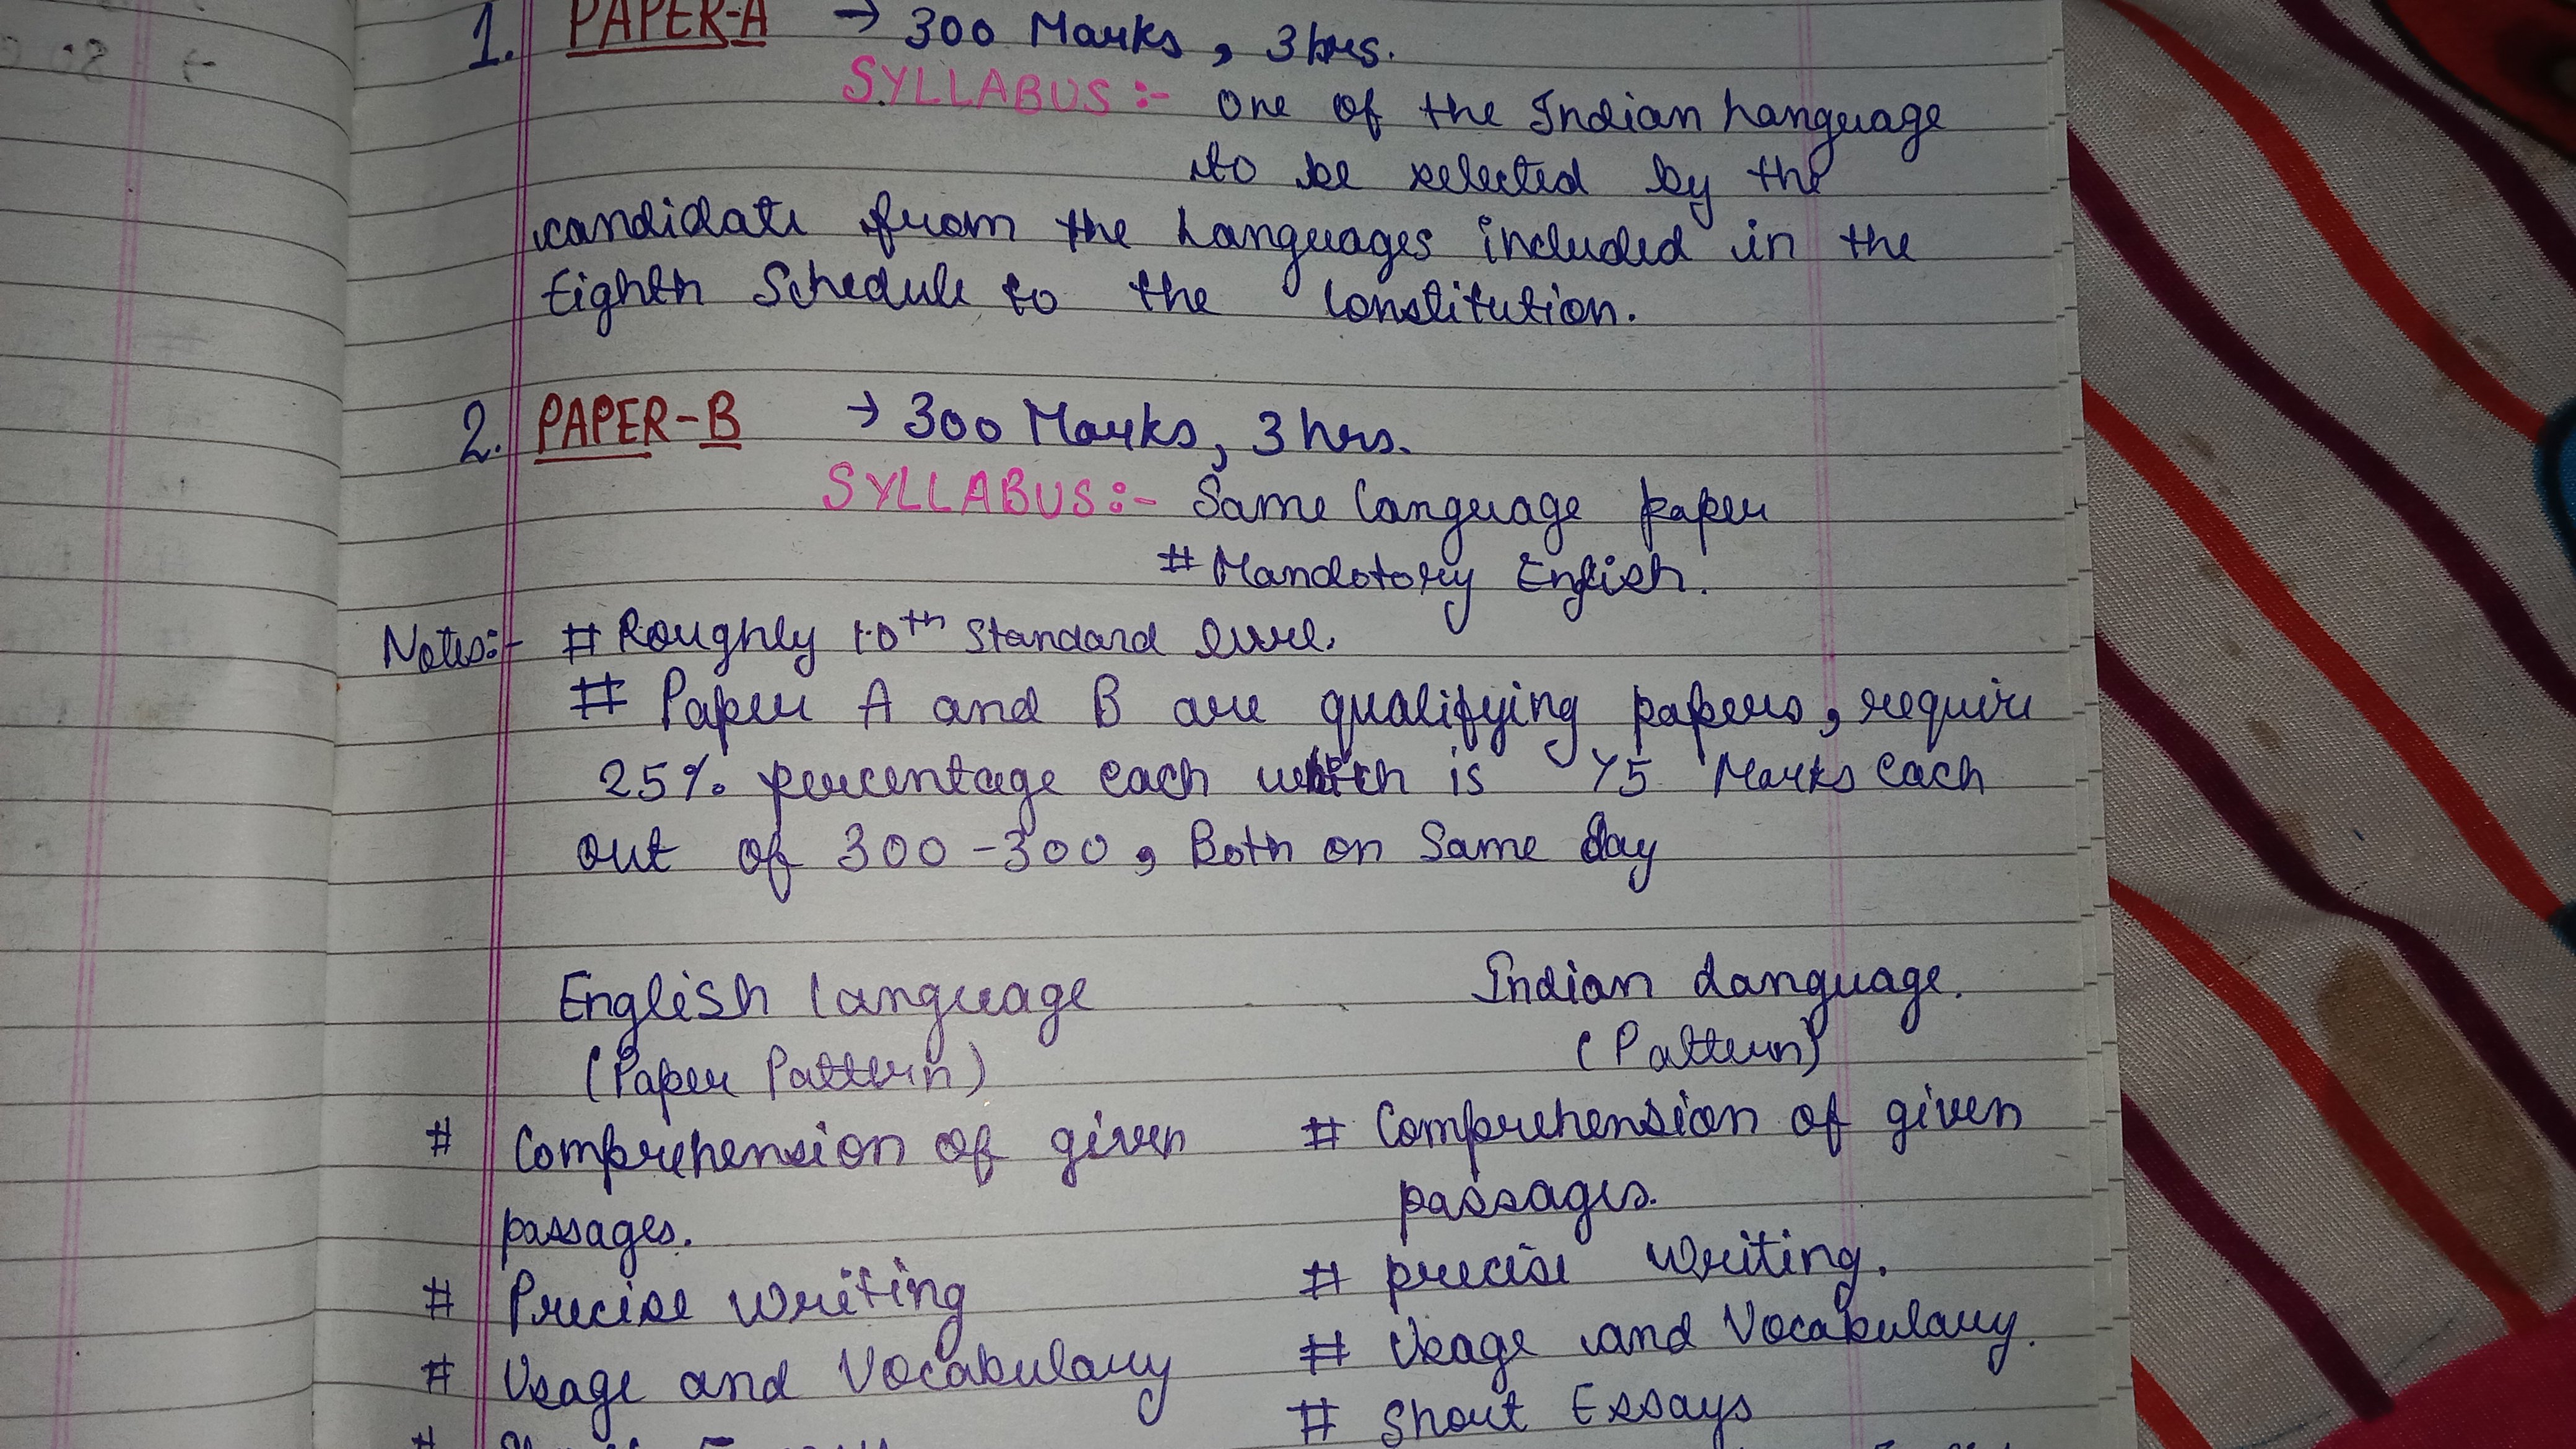 1. PAPER-A → 300 Marks, 3hrs.
SYLLABUS :- One of the Indian Language
to be selected by the
candidate from the Languages included in the
Eighth Schedule to the Constitution.
2. PAPER-B → 300 Marks, 3hrs.
SYLLABUS:- Same language paper
# Mandotory English.
Notes:- # Roughly 10th Standard level.
# Paper A and B are qualifying papers, require
25% percentage each which is 75 Marks each
out of 300-300, Both on Same day
English language
(Paper Pattern)
# Comprehension of given
passages.
# Precise Writing
# Usage and Vocabulary
Indian Language.
(Pattern)
# Comprehension of given
passages.
# precise Writing.
# Usage and Vocabulary.
# Short Essays